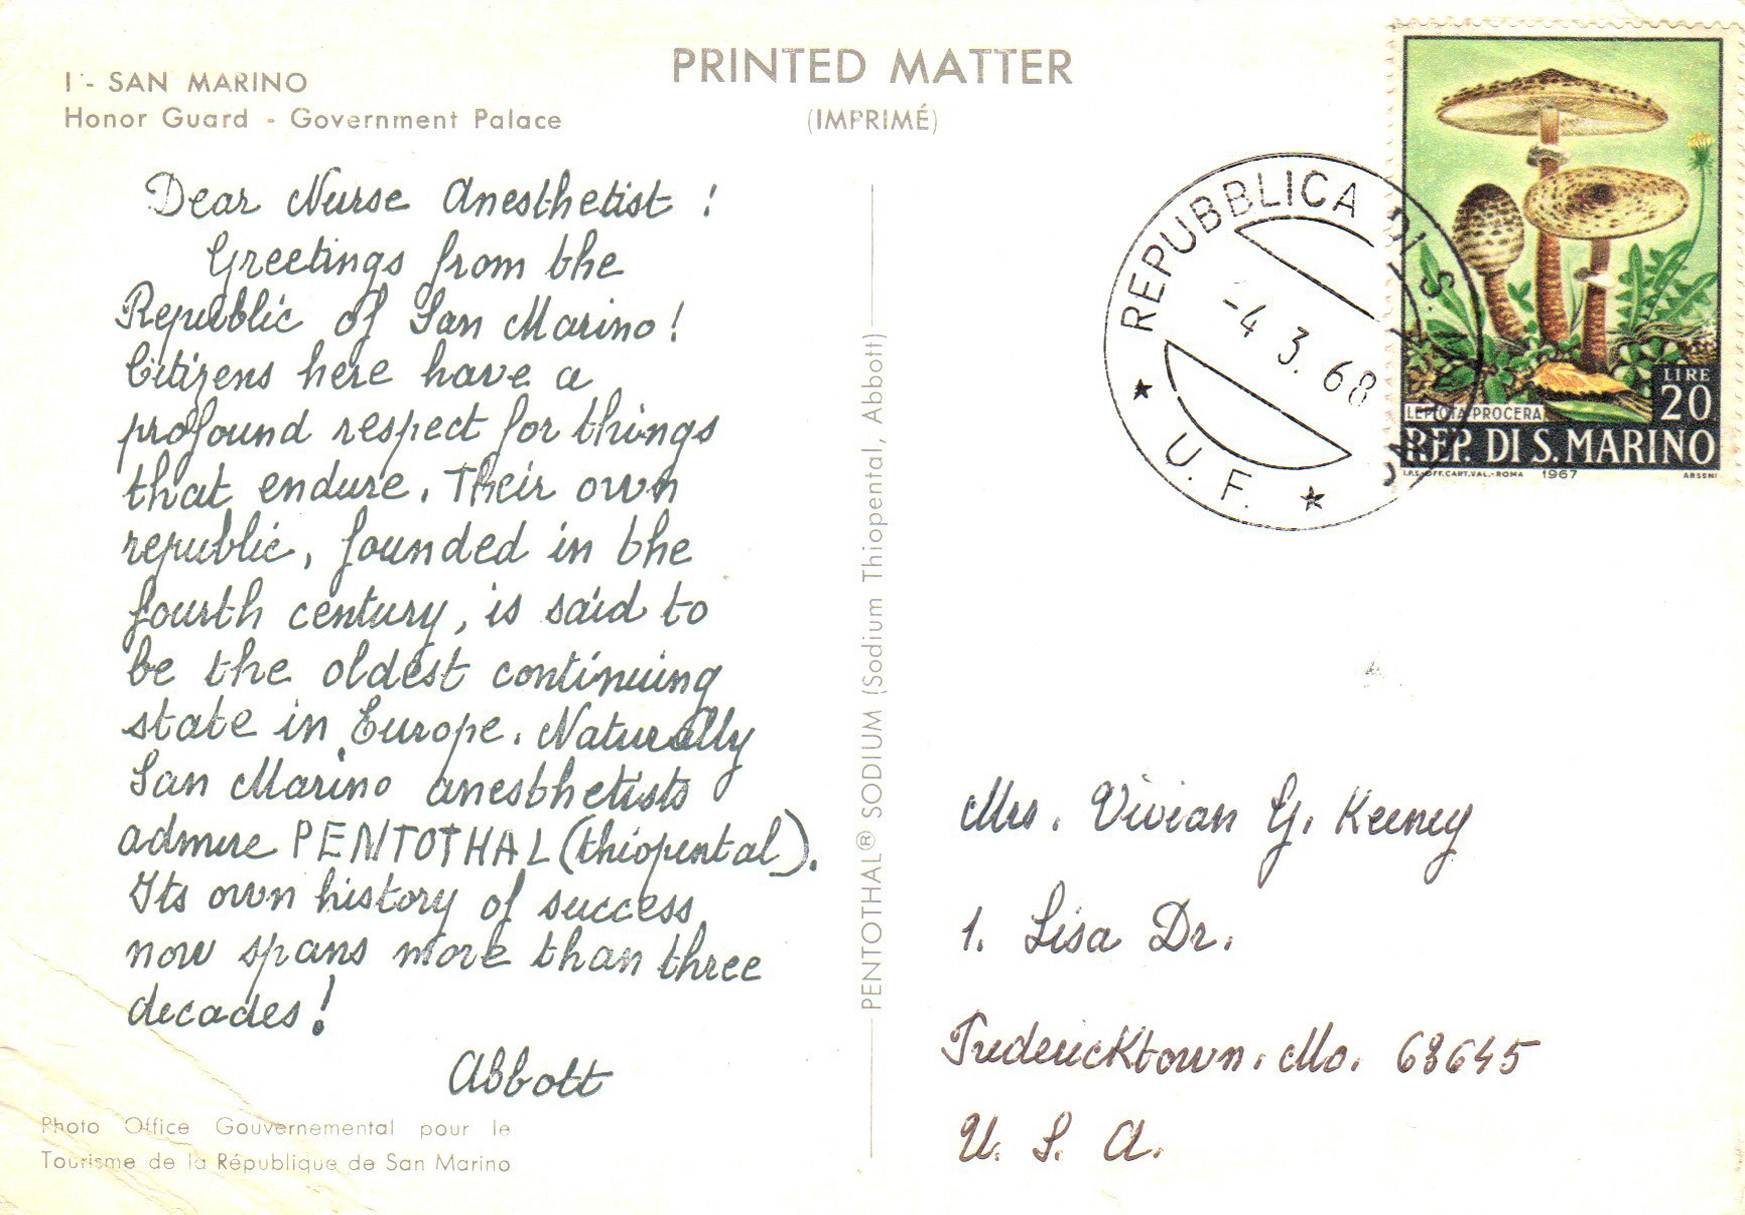 I - SAN MARINO
Honor Guard - Government Palace
PRINTED MATTER
(IMPRIMÉ)
Dear Nurse Anesthetist !
Greetings from the
Republic of San Marino!
Citizens here have a
profound respect for things
that endure. Their own
republic, founded in the
fourth century, is said to
be the oldest continuing
state in Europe. Naturally
San Marino anesthetists
admire PENTOTHAL (thiopental).
Its own history of success
now spans more than three
decades!
Abbott
Photo Office Gouvernemental pour le
Tourisme de la République de San Marino
PENTOTHAL® SODIUM (Sodium Thiopental, Abbott)
REPUBBLICA DI S. MARINO
-4 3. 68
★ U. F. ★
LIRE
20
LEPIOTA PROCERA
REP. DI S. MARINO
I.P.S.-OFF. CART. VAL.-ROMA 1967 ARSENI
Mrs. Vivian G. Keeney
1. Lisa Dr.
Fredericktown. Mo. 63645
U. S. A.